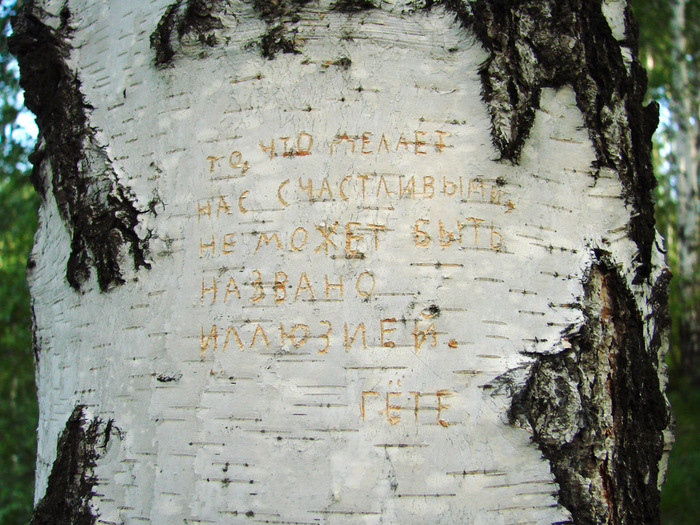 ТО, ЧТО ДЕЛАЕТ
НАС СЧАСТЛИВЫМИ,
НЕ МОЖЕТ БЫТЬ
НАЗВАНО
ИЛЛЮЗИЕЙ.
ГЁТЕ